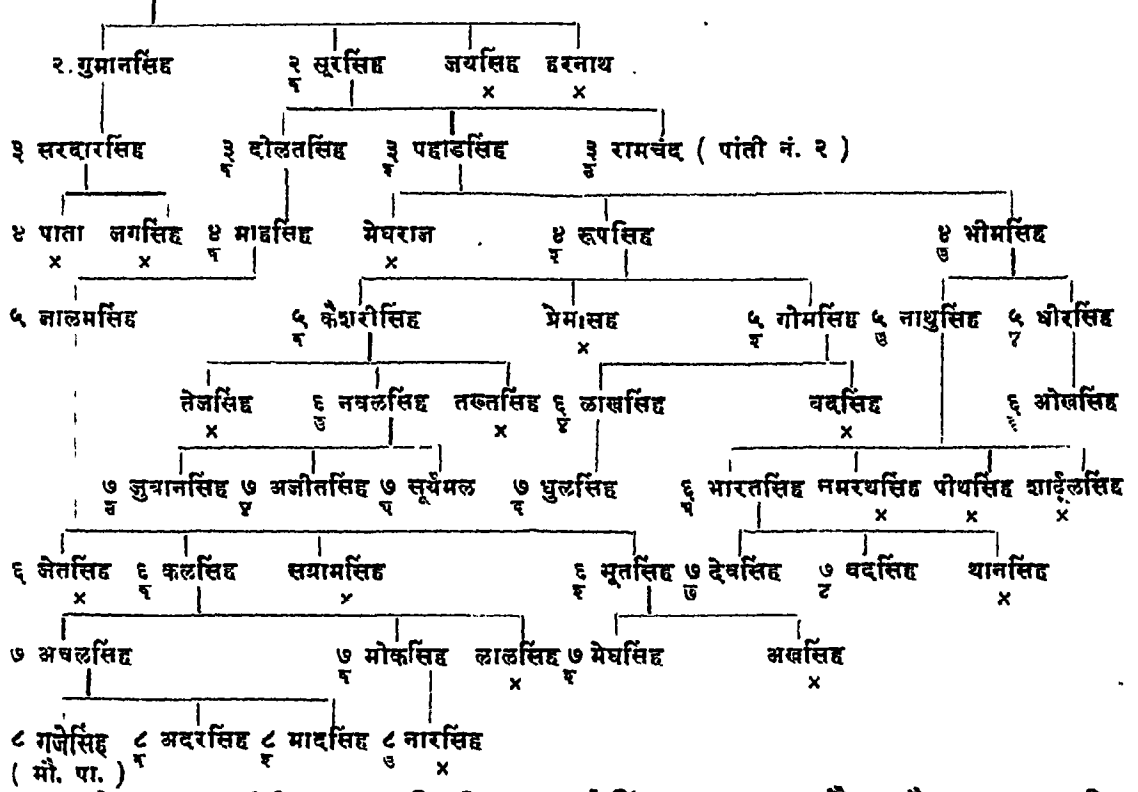 २. गुमानसिंह २ सूरसिंह जयसिंह हरनाथ
× ×
३ सरदारसिंह ३ दोलतसिंह ३ पहाडसिंह ३ रामचंद ( पांती नं. २ )
४ पाता जगसिंह ४ माहसिंह मेघराज ४ रूपसिंह ४ भीमसिंह
× × ×
५ जालमसिंह ५ केशरीसिंह प्रेमसिंह ५ गोमसिंह ५ नाथुसिंह ५ धीरसिंह
×
तेजसिंह ६ नवलसिंह तख्तसिंह ६ लाखसिंह वदसिंह ६ ओखसिंह
× × ×
७ जुवानसिंह ७ अजीतसिंह ७ सूर्यमल ७ धुलसिंह ६ भारतसिंह समरथसिंह पीथसिंह शार्दूलसिंह
× × ×
६ जेतसिंह ६ कलसिंह सग्रामसिंह ६ भूतसिंह ७ देवसिंह ७ वदसिंह थानसिंह
× × ×
७ अचलसिंह ७ मोकसिंह लालसिंह ७ मेघसिंह अखसिंह
× ×
८ गजेसिंह ८ अदरसिंह ८ मादसिंह ८ नारसिंह
( मौ. पा. ) ×